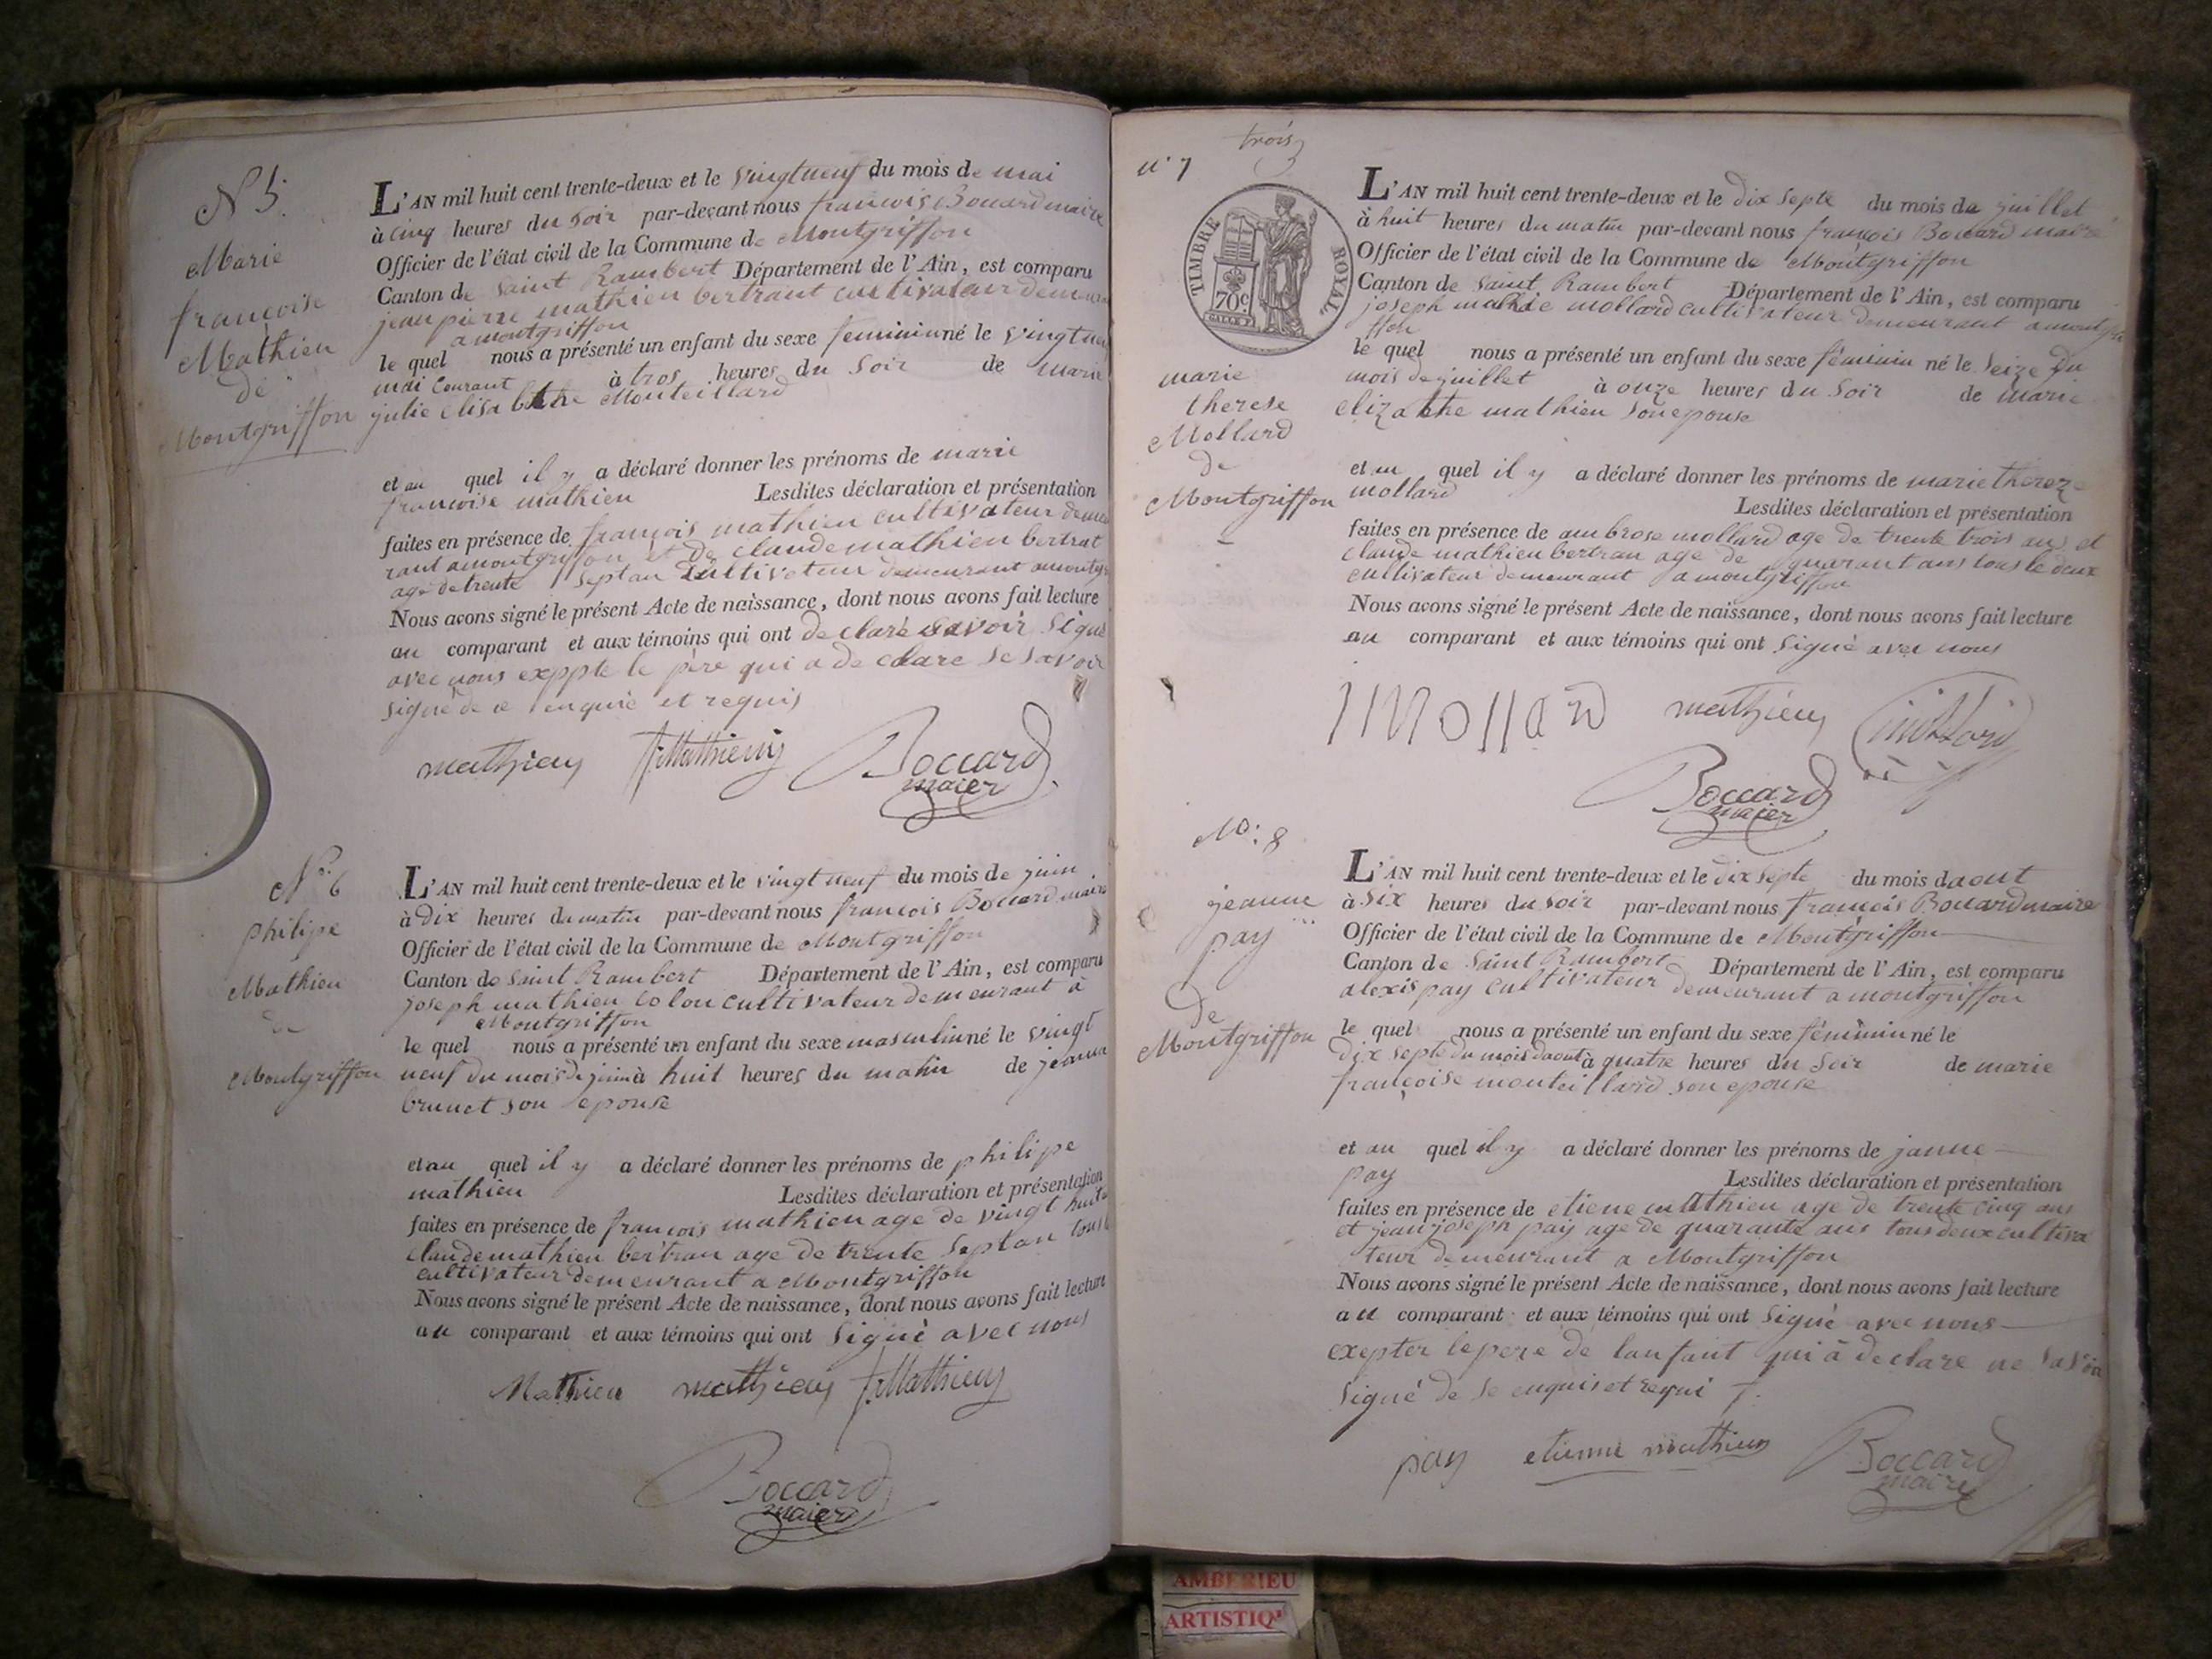 N 5.
Marie
françoise
Mathieu
de
Montgriffon
L'AN mil huit cent trente-deux et le vingtneuf du mois de mai
à cinq heures du soir par-devant nous francois Boccard maire
Officier de l'état civil de la Commune de Montgriffon
Canton de Saint Rambert Département de l'Ain, est comparu
jean pierre mathieu bertrant cultivateur demeura
a montgriffon
le quel nous a présenté un enfant du sexe feminin né le vingtneu
mai courant à tros heures du soir de marie
julie elisabethe Monteillard
et au quel il y a déclaré donner les prénoms de marie
francoise mathieu Lesdites déclaration et présentation
faites en présence de françois mathieu cultivateur demeu
rant a montgriffon et de claude mathieu bertrat
age de trente sept an cultivateur demeurant a montgr
Nous avons signé le présent Acte de naissance, dont nous avons fait lecture
au comparant et aux témoins qui ont declaré savoir signé
avec nous exppte le père qui a de clare se savoir
signé de ce enquie et requis
mathieu f. Mathieu Boccard
maier
N° 6
philipe
Mathieu
de
Montgriffon
L'AN mil huit cent trente-deux et le vingt neuf du mois de juin
à dix heures du matin par-devant nous francois Boccard maire
Officier de l'état civil de la Commune de Montgriffon
Canton de Saint Rambert Département de l'Ain, est comparu
joseph mathieu colon cultivateur demeurant à
Montgriffon
le quel nous a présenté un enfant du sexe masculin né le vingt
neuf du mois de juin à huit heures du matin de jeanne
brunet son epouse
et au quel il y a déclaré donner les prénoms de philipe
mathieu Lesdites déclaration et présentation
faites en présence de françois mathieu age de vingt huit
claude mathieu bertran age de trente sept an tous
cultivateur demeurant a Montgriffon
Nous avons signé le présent Acte de naissance, dont nous avons fait lecture
au comparant et aux témoins qui ont signé avec nous
Mathieu mathieu f. Mathieu
Boccard
maier
trois
n° 7
TIMBRE ROYAL
70 c
marie
therese
Mollard
de
Montgriffon
L'AN mil huit cent trente-deux et le dix septe du mois de juillet
à huit heures du matin par-devant nous francois Boccard maire
Officier de l'état civil de la Commune de Montgriffon
Canton de Saint Rambert Département de l'Ain, est comparu
joseph mollard cultivateur demeurant a montgri
ffon
le quel nous a présenté un enfant du sexe féminin né le seize du
mois de juillet à onze heures du soir de marie
elizabthe mathieu son epouse
et au quel il y a déclaré donner les prénoms de marie thereze
mollard Lesdites déclaration et présentation
faites en présence de ambrose mollard age de trente trois ans et
claude mathieu bertran age de quarant ans tous le deux
cultivateur demeurant a montgriffon
Nous avons signé le présent Acte de naissance, dont nous avons fait lecture
au comparant et aux témoins qui ont signé avec nous
mollard mathieu mollard
Boccard
maier
N°: 8
jeanne
pay
de
Montgriffon
L'AN mil huit cent trente-deux et le dix septe du mois daout
à six heures du soir par-devant nous francois Boccard maire
Officier de l'état civil de la Commune de Montgriffon
Canton de Saint Rambert Département de l'Ain, est comparu
alexis pay cultivateur demeurant a montgriffon
le quel nous a présenté un enfant du sexe féminin né le
dix septe du mois daout à quatre heures du soir de marie
françoise monteillard son epouse
et au quel il y a déclaré donner les prénoms de janne
pay Lesdites déclaration et présentation
faites en présence de etiene mathieu age de trente cinq ans
et jean joseph pay age de quarante ans tous deux cultiva
teur demeurant a Montgriffon
Nous avons signé le présent Acte de naissance, dont nous avons fait lecture
au comparant et aux témoins qui ont signé avec nous
exepter le pere de lanfant qui à declare ne savoir
signé de se enquis et requi
pay etienne mathieu Boccard
maire
AMBERIEU
ARTISTIQ